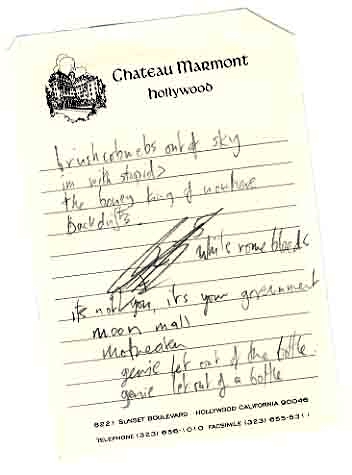 Chateau Marmont
hollywood
brush cobwebs out of sky
im with stupid>
the boney king of nowhere
Backdrifts
while rome bloods
its not you, it's your government
moon mall
genie let out of the bottle.
genie let out of a bottle
8221 SUNSET BOULEVARD · HOLLYWOOD CALIFORNIA 90046
TELEPHONE (323) 656-1010 FACSIMILE (323) 655-5311